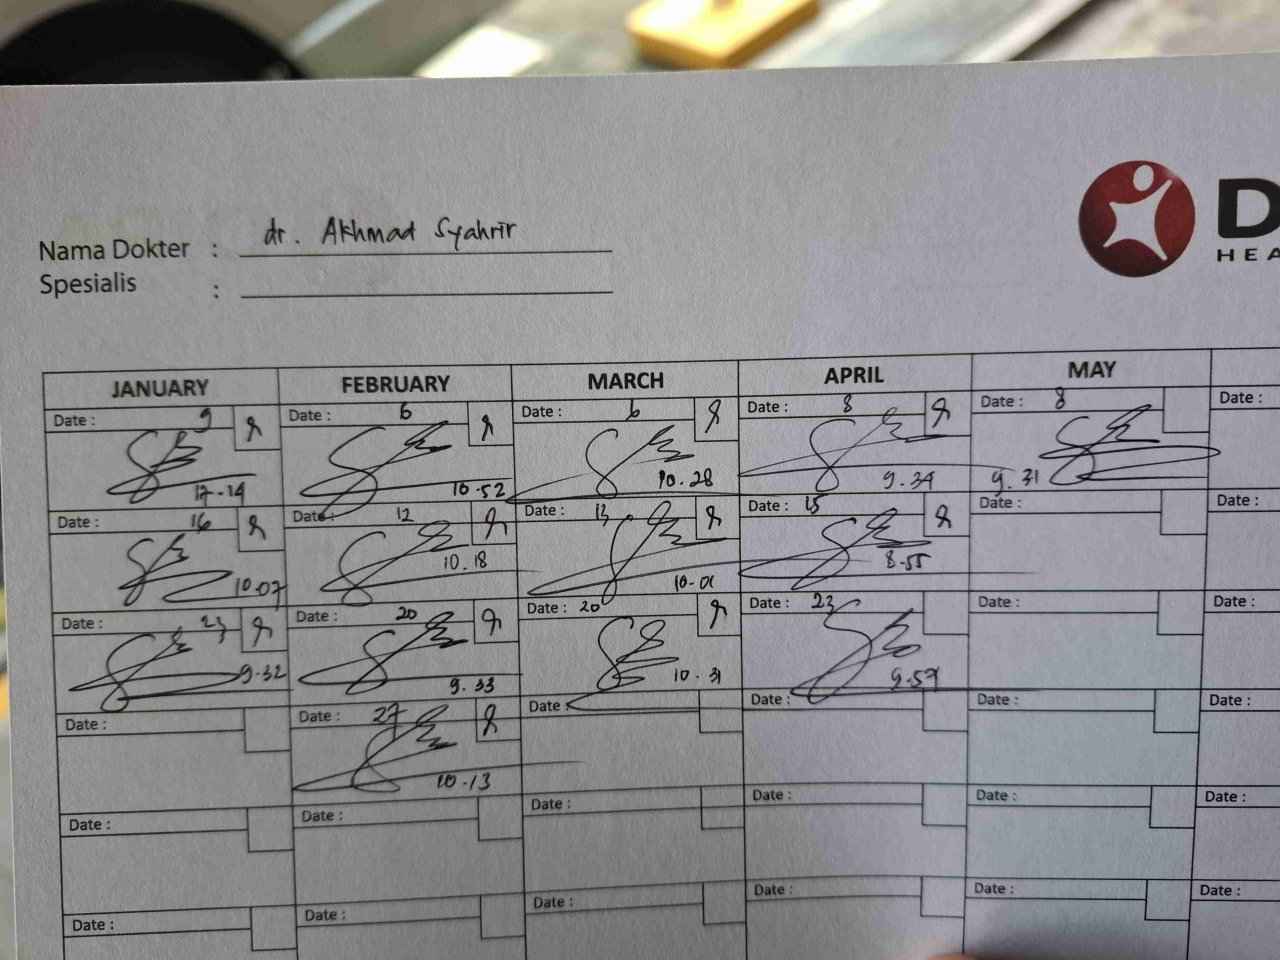 dr. Akhmad Syahrir
Nama Dokter :
Spesialis :
D
HEA
JANUARY FEBRUARY MARCH APRIL MAY
Date : 9 Date : 6 Date : 6 Date : 8 Date : 8 Date :
10.52 10.28 9.34 9.31
Date : 16 Date : 12 Date : 13 Date : 15 Date :
10.07 10.18 10.01 8.55
Date : 23 Date : 20 Date : 20 Date : 23 Date : Date :
9.32 9.33 10.31 9.57
Date : Date : 27 Date : Date : Date : Date :
10.13
Date : Date : Date : Date : Date : Date :
Date : Date : Date : Date : Date : Date :